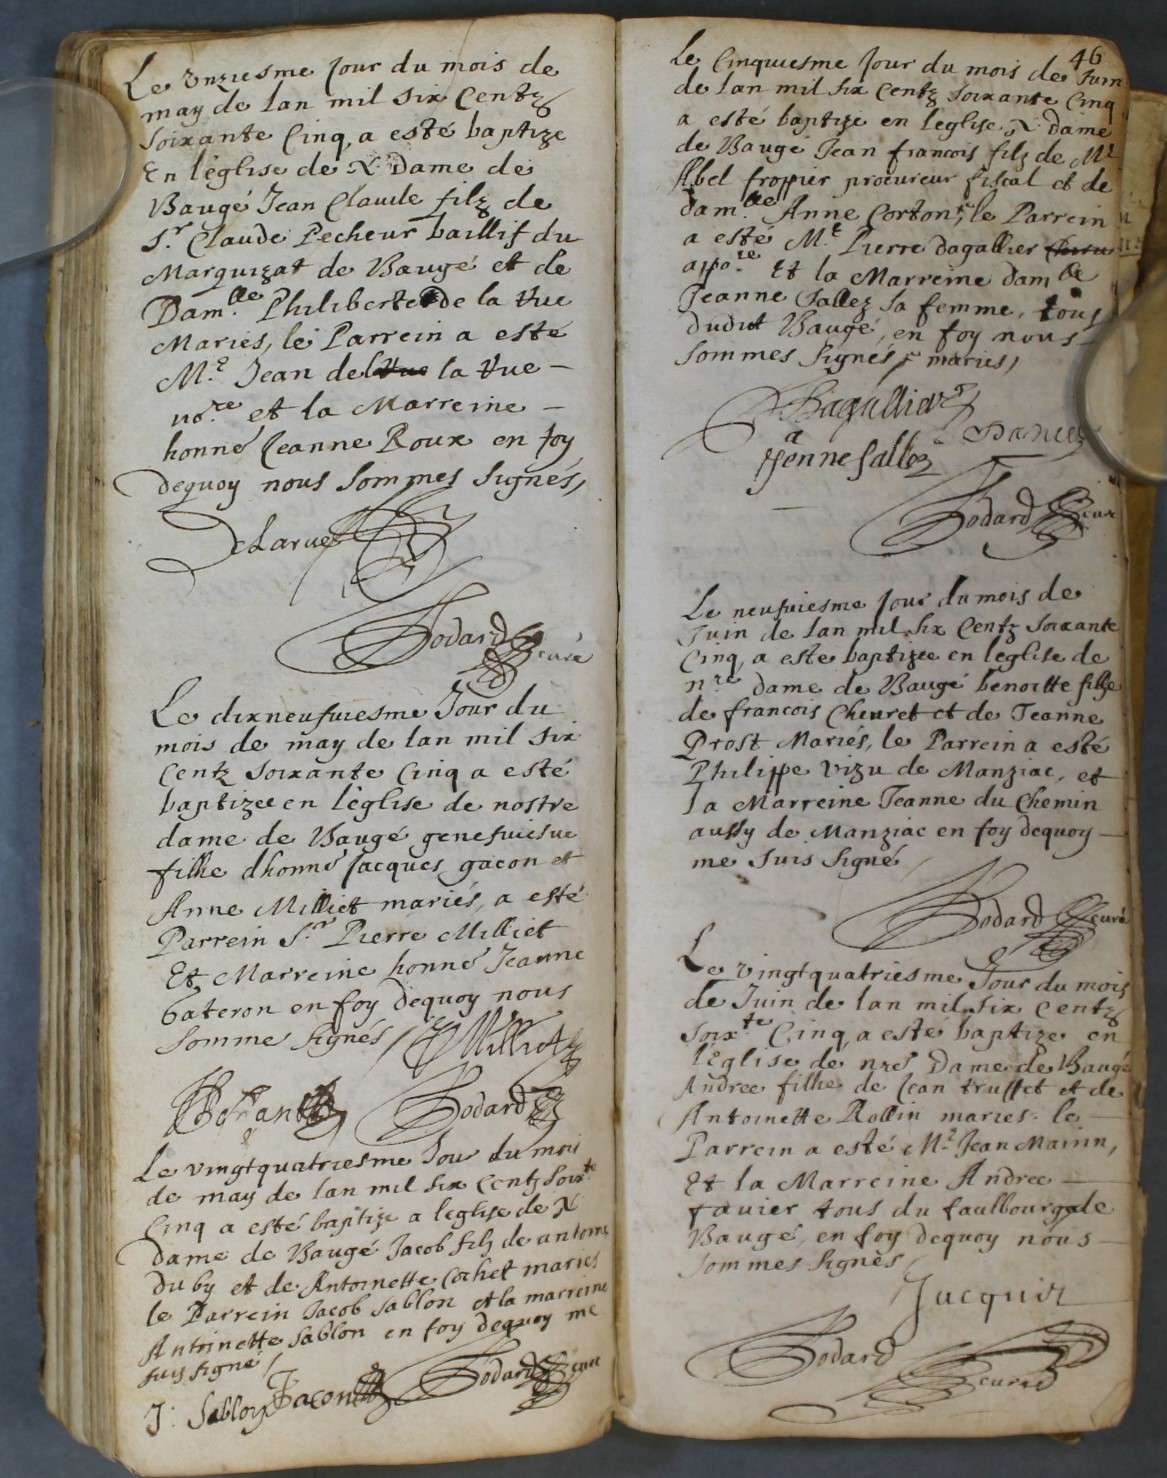 Le unziesme Jour du mois de
may de lan mil six Centz
soixante Cinq, a esté baptize
En léglise de N Dame de
Baugé Jean Claude filz de
S.r Claude Pecheur baillif du
Marquizat de Baugé et de
Dam.lle Philiberte de la Rue
Mariés, le Parrein a esté
M.e Jean de la Rue
no.re et la Marreine
honne Jeanne Roux en foy
dequoy nous Sommes Signés,
DeLarue
Bodard curé
Le dixneufviesme Jour du
mois de may de lan mil six
Centz soixante Cinq a esté
baptizee en léglise de nostre
dame de Baugé genefviesve
fillie dhonne Jacques gacon et
Anne Milliet mariés, a esté
Parrein S.r Pierre Milliet
Et Marreine honne Jeanne
Gateron en foy dequoy nous
Somme Signés / P Milliet
Bodard
Le vingtquatriesme Jour du mois
de may de lan mil six Centz Soix.te
Cinq a esté baptize a leglise de N
dame de Baugé Jacob filz de antoine
Duby et de Antoinette Cochet maries
le Parrein Jacob Sablon et la marreine
Antoinette Sablon en foy dequoy me
suis signé /
J: Sablon Jacon Bodard curé
46
Le Cinquiesme Jour du mois de Juin
de lan mil six Centz soixante Cinq
a esté baptize en leglise N dame
de Baugé Jean francois filz de M.e
Abel froppier procureur fiscal et de
dam.lle Anne Corton, le Parrein
a esté M.e Pierre Dagallier
apo.re Et la Marreine dam.lle
Jeanne Sallez Sa femme, tous
dudit Baugé, en foy nous
Sommes Signés, mariés,
Dagallier
Jeanne Sallez
Bodard curé
Le neufviesme Jour du mois de
Juin de lan mil six Centz soixante
Cinq, a este baptizee en leglise de
n.re dame de Baugé benoitte fillie
de francois Cheuret et de Jeanne
Prost Mariés, le Parrein a esté
Philippe Vizu de Manziac, et
la Marreine Jeanne du Chemin
aussy de Manziac en foy dequoy
me suis Signé
Bodard curé
Le vingtquatriesme Jour du mois
de Juin de lan mil six centz
soix.te Cinq, a este baptize en
léglise de nre Dame de Baugé
Andree fillie de Jean truffet et de
Antoinette Rollin maries le
Parrein a esté M.e Jean Mainn,
Et la Marreine Andree
favier tous du faulbourg de
Baugé, en foy dequoy nous
Sommes Signés
Jacquin
Bodard curé